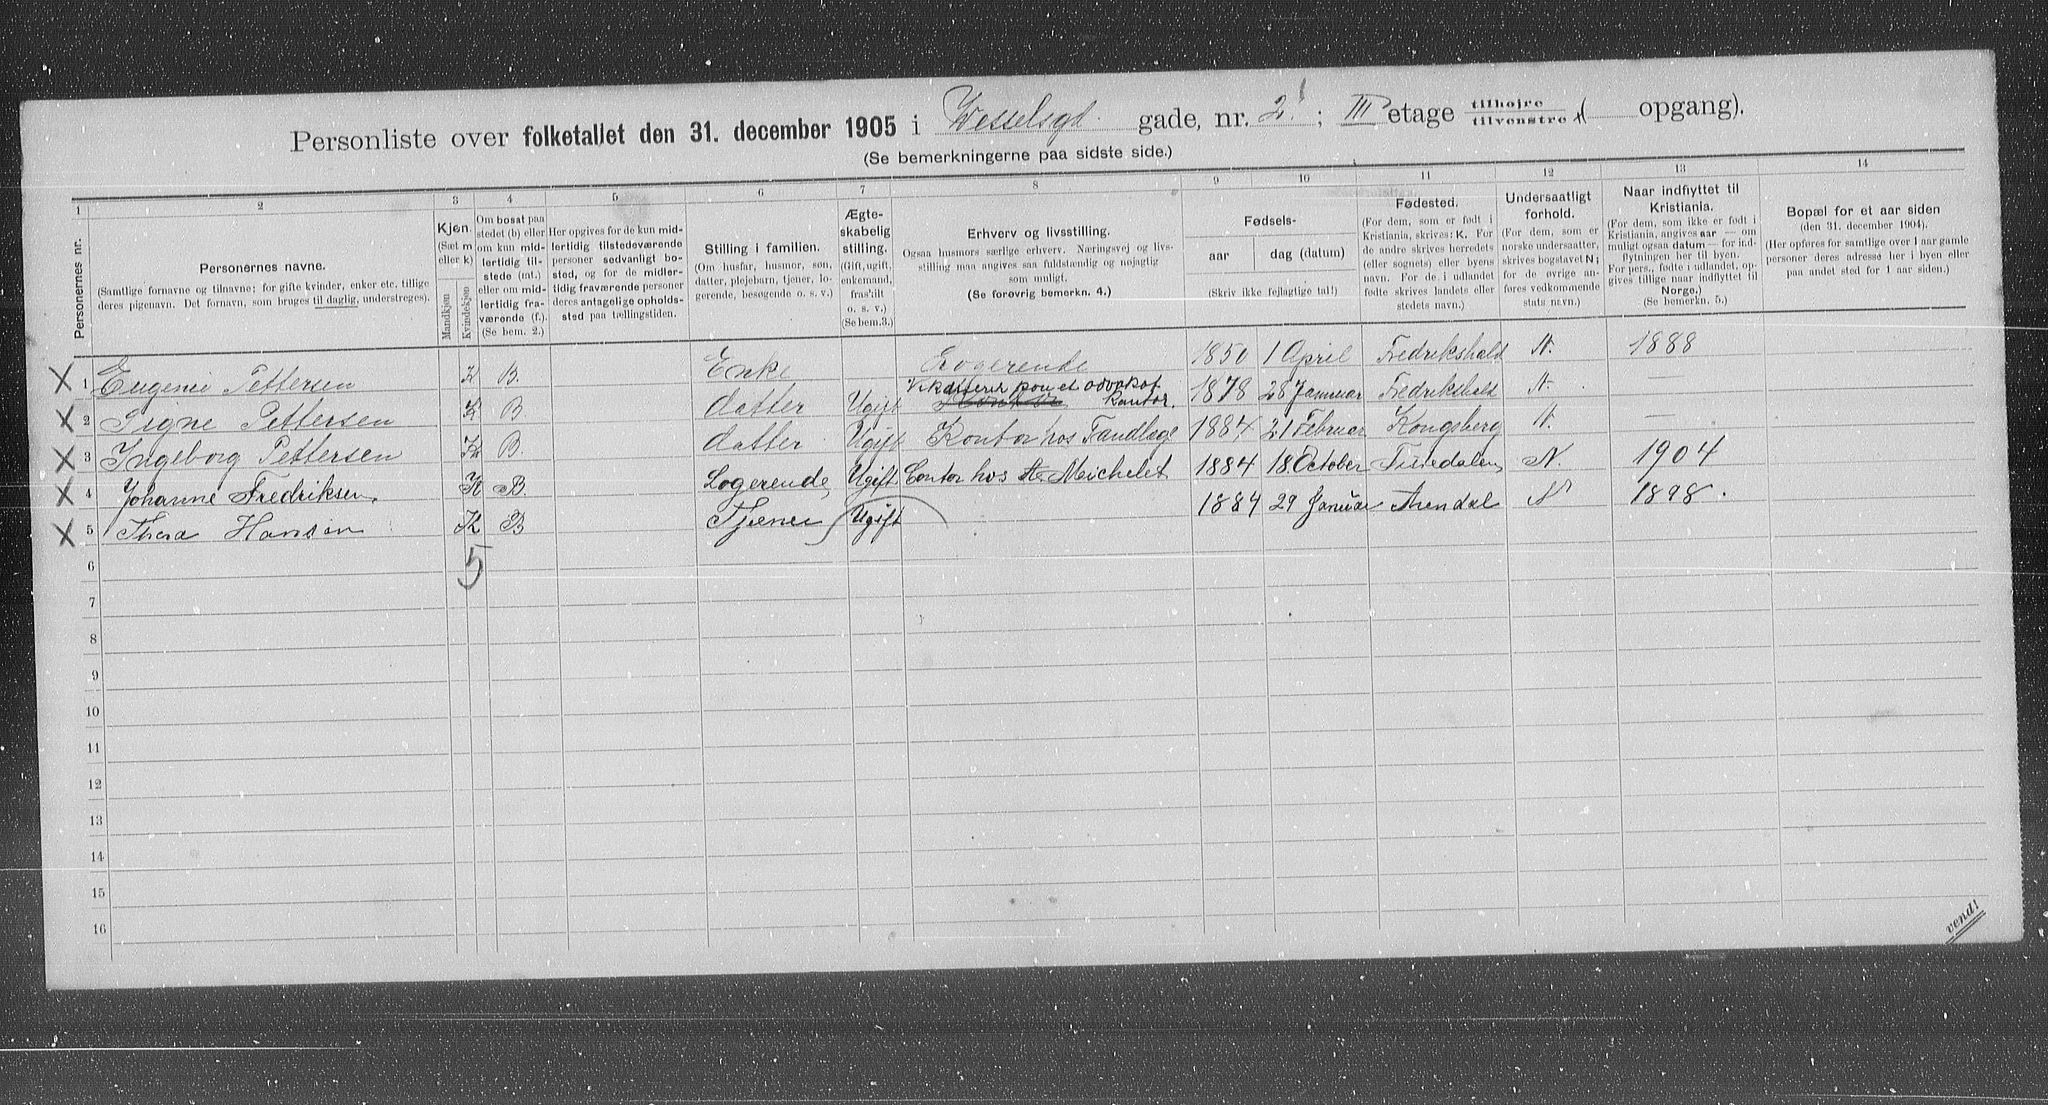 Personliste over folketallet den 31. december 1905 i Wesselsgt. gade, nr. 2¹; III etage tilhøjre tilvenstre ( opgang).
(Se bemerkningerne paa sidste side.)
1 2 3 4 5 6 7 8 9 10 11 12 13 14
Personernes nr.
Personernes navne.
(Samtlige fornavne og tilnavne; for gifte kvinder, enker etc. tillige
deres pigenavn. Det fornavn, som bruges til daglig, understreges).
Kjøn.
(Sæt m
eller k)
Mandkjøn
Kvindekjøn
Om bosat paa
stedet (b) eller
om kun midlertidig tilstede (mt.)
eller om midlertidig fraværende (f.).
(Se bem. 2.)
Her opgives for de kun midlertidig tilstedeværende
personer sedvanligt bosted, og for de midlertidig fraværende personer
deres antagelige opholdssted paa tællingstiden.
Stilling i familien.
(Om husfar, husmor, søn,
datter, plejebarn, tjener, logerende, besøgende o. s. v.)
Ægteskabelig
stilling.
(Gift, ugift,
enkemand,
fraskilt
o. s. v.)
(Se bem. 3.)
Erhverv og livsstilling.
Ogsaa husmors særlige erhverv. Næringsvej og livsstilling maa angives saa fuldstændig og nøjagtig
som muligt.
(Se forøvrig bemerkn. 4.)
Fødsels-
aar
dag (datum)
(Skriv ikke fejlagtige tal!)
Fødested.
(For dem, som er født i
Kristiania, skrives: K. For
de andre skrives herredets
(eller sognets) eller byens
navn. For de i udlandet
fødte skrives landets eller
stedets navn.)
Undersaatligt
forhold.
(For dem, som er
norske undersaatter,
skrives bogstavet N;
for de øvrige anføres vedkommende
stats navn.)
Naar indflyttet til
Kristiania.
(For dem, som ikke er født i
Kristiania, angives aar — om
muligt ogsaa datum — for indflytningen her til byen.
For pers., fødte i udlandet, opgives tillige naar indflyttet til
Norge.)
(Se bemerkn. 5.)
Bopæl for et aar siden
(den 31. december 1904).
(Her opføres for samtlige over 1 aar gamle
personer deres adresse her i byen eller
paa andet sted for 1 aar siden.)
X 1 Eugenie Pettersen K B. Enke Logerende 1850 1 April Fredrikshald N. 1888
X 2 Signe Pettersen K B datter Ugift Vikarierer paa et advokat kontor. 1878 28 Januar Fredrikshald N.
X 3 Ingeborg Pettersen K B. datter Ugift Kontor hos Tandlæge 1884 21 Februar Kongsberg N. —
X 4 Johanne Fredriksen. K B. Logerende, Ugift Contor hos Michelet 1884 18. October N. 1904
X 5 Thora Hansen K B Tjener Ugift 1884 29 Januar Arendal N 1898.
5
6
7
8
9
10
11
12
13
14
15
16
vend!